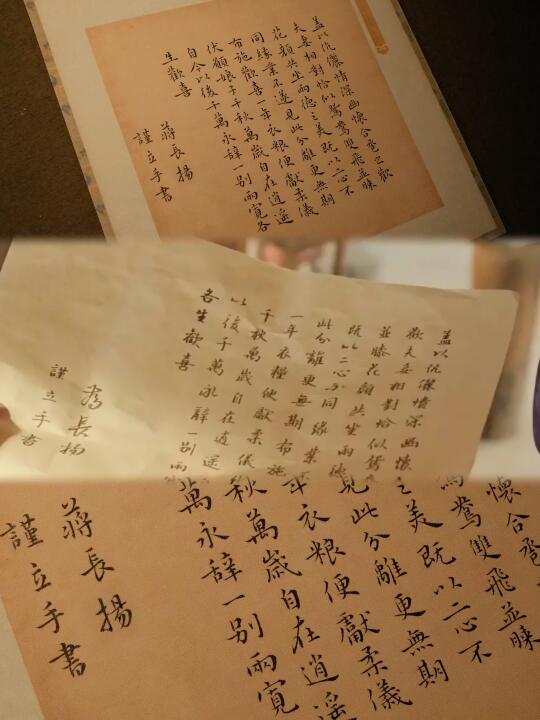 蓋以伉儷情深幽懷合巹之歡
夫妻相對恰似鴛鴦雙飛並膝
花顏共坐兩德之美既以二心不
同緣業不遂見此分離更無期
布施歡喜一年衣粮便獻柔儀
伏願娘子千秋萬歲自在逍遥
自今以後千萬永辭一別兩寬各
生歡喜
蔣長揚
謹立手書
蓋以伉儷情深幽懷
歡夫妻相對恰似鴛
並膝花顏共坐兩德
既以二心不同緣業
此分離更無期布施
一年衣糧便獻柔儀
千秋萬歲自在逍遥
以後千萬永辭一別兩
各生歡喜
蔣長揚
謹立手書
懷合巹
鴦雙飛並膝
之美既以二心不
見此分離更無期
年衣粮便獻柔儀
秋萬歲自在逍遥
萬永辭一別兩寬
蔣長揚
謹立手書